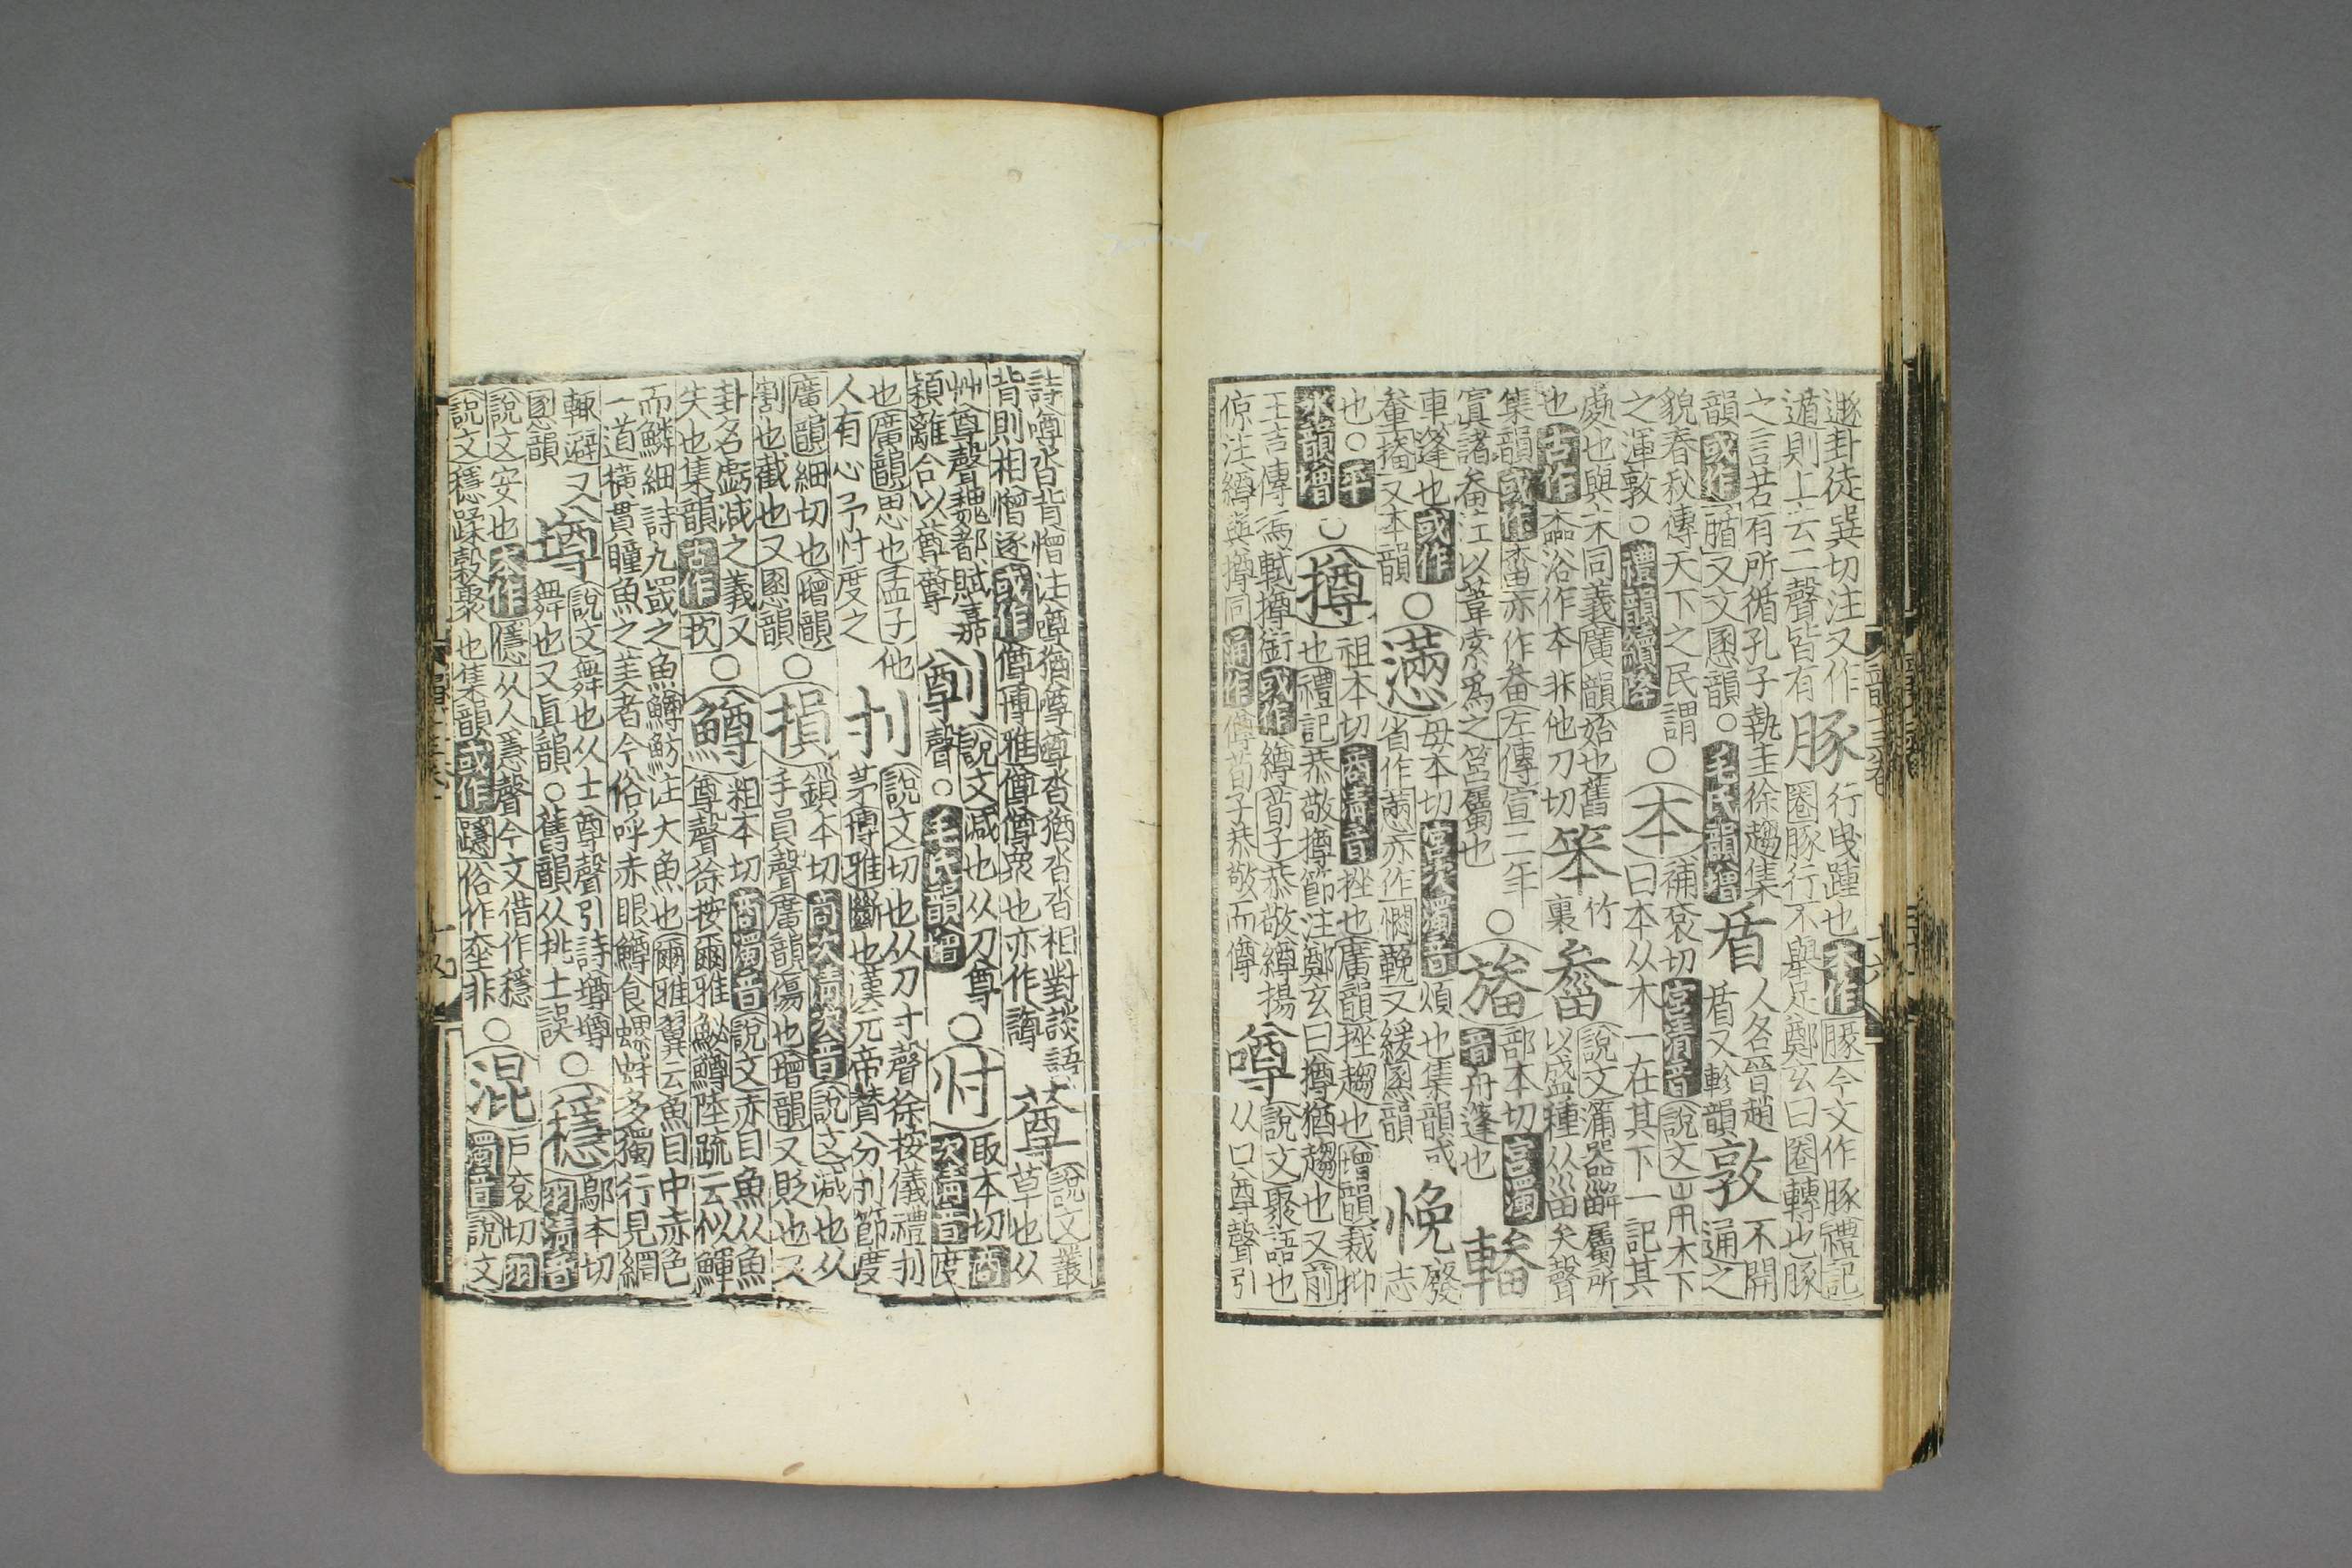 遯卦徒巽切注又作豚行曳踵也本作豚今文作豚禮記
遁則上去二聲皆有圈豚行不舉足鄭玄曰圈轉也豚
之言若有所循孔子執圭徐趨集盾人名晉趙敦不開
韻或作腯又文圂韻○毛氏韻增盾又軫韻通之
貌春秋傳天下之民謂○本補袞切宮清音說文木下
之渾敦○禮韻續降曰本从木一在其下一記其
處也與末同義廣韻始也舊笨竹畚說文蒲器也屬所
也古作俗作本非他刀切裏以盛種从甾弁聲
集韻或作亦作畚左傳宣二年○部本切宮濁
寘諸畚注以草索爲之筥屬也音舟篷也
車篷也或作○懣母本切宮次濁音煩也集韻或悗廢
又本韻省作亦作懣又緩圂韻志
也○平○撙祖本切商清音挫也廣韻挫趨也增韻裁抑
韻增也禮記恭敬撙節注鄭玄曰撙猶趨也又前
王吉傳馮軾撙銜或作縛荀子恭敬縛揚噂說文聚語也
倞注縛與撙同通作僔荀子恭敬而僔从口尊聲引
詩噂沓背憎注噂猶噂噂沓猶沓沓相對談語蓴說文叢
背則相憎逐或作僔博雅僔僔衆也亦作譐草也从
艸尊聲魏都賦嘉剸說文減也从刀尊○忖取本切商
穎離合以蓴蓴聲○毛氏韻增次清音度
也廣韻思也孟子他刌說文切也从刀寸聲徐按儀禮刌
人有心予忖度之茅博雅斷也漢元帝贊分刌節度
廣韻細切也增韻○損鎖本切商次清次音說文減也从
割也截也又圂韻手員聲廣韻傷也增韻又貶也又
卦名虧減之義又○鱒粗本切商濁音說文赤目魚从魚
失也集韻古作尊聲徐按爾雅鮅鱒陸疏云似鯶
而鱗細詩九罭之魚鱒魴注大魚也爾雅翼云魚目中赤色
一道橫貫瞳魚之美者今俗呼赤眼鱒食螺蚌多獨行見網
輒避又墫說文舞也从士尊聲引詩墫墫○穩鄔本切
圂韻舞也又眞韻○舊韻从挑土誤羽清音
說文安也本作㒚从人㥯聲今文借作穩○混戶袞切羽
說文穩蹂穀聚也集韻或作俗作非濁音說文